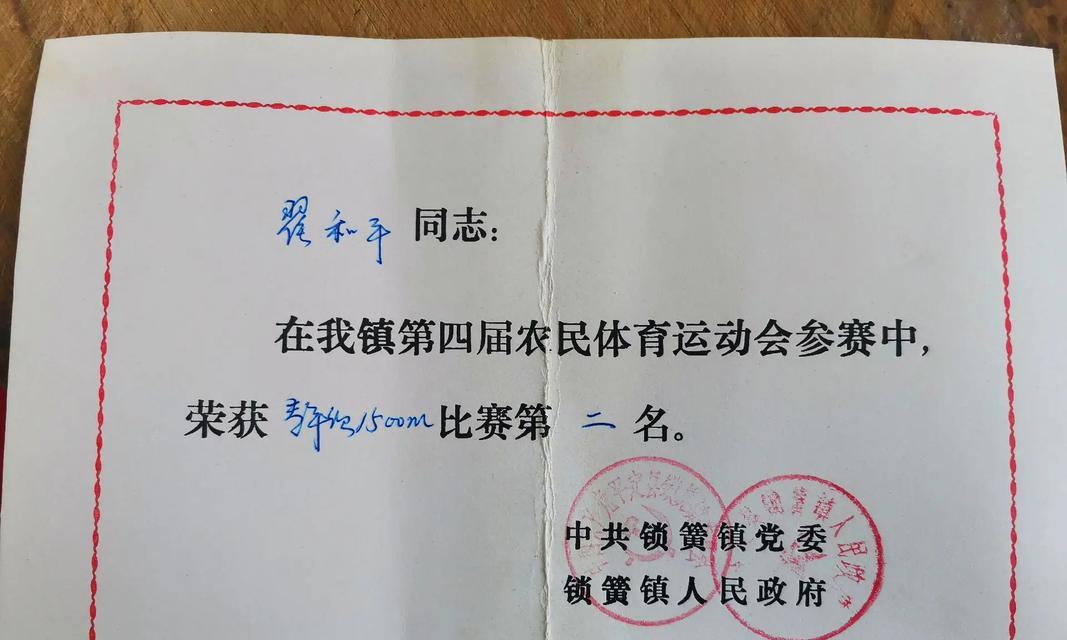 翟和平 同志：
在我镇第四届农民体育运动会参赛中，
荣获 青年组1500m 比赛第 二 名。
中共锁簧镇党委
锁簧镇人民政府